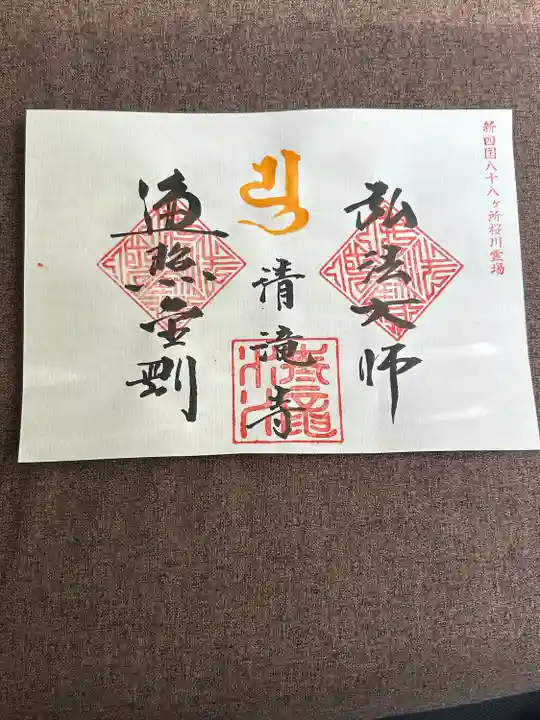 新四国八十八ヶ所桜川霊場
弘法大師
清滝寺
遍照金剛